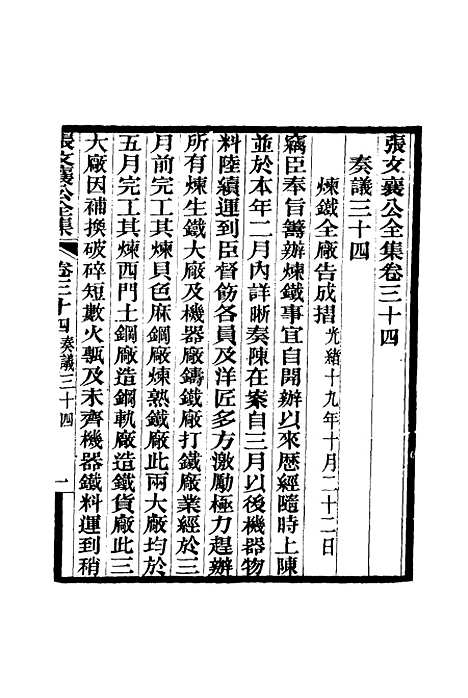 張文襄公全集卷三十四
奏議三十四
煉鐵全廠告成摺 光緒十九年十月二十二日
竊臣奉旨籌辦煉鐵事宜自開辦以來歷經隨時上陳
並於本年二月內詳晰奏陳在案自三月以後機器物
料陸續運到臣督飭各員及洋匠多方激勵極力趕辦
所有煉生鐵大廠及機器廠鑄鐵廠打鐵廠業經於三
月前完工其煉貝色麻鋼廠煉熟鐵廠此兩大廠均於
五月完工其煉西門土鋼廠造鋼軌廠造鐵貨廠此三
大廠因補換破碎短數火甎及未齊機器鐵料運到稍
張文襄公全集 卷三十四 奏議三十四 一